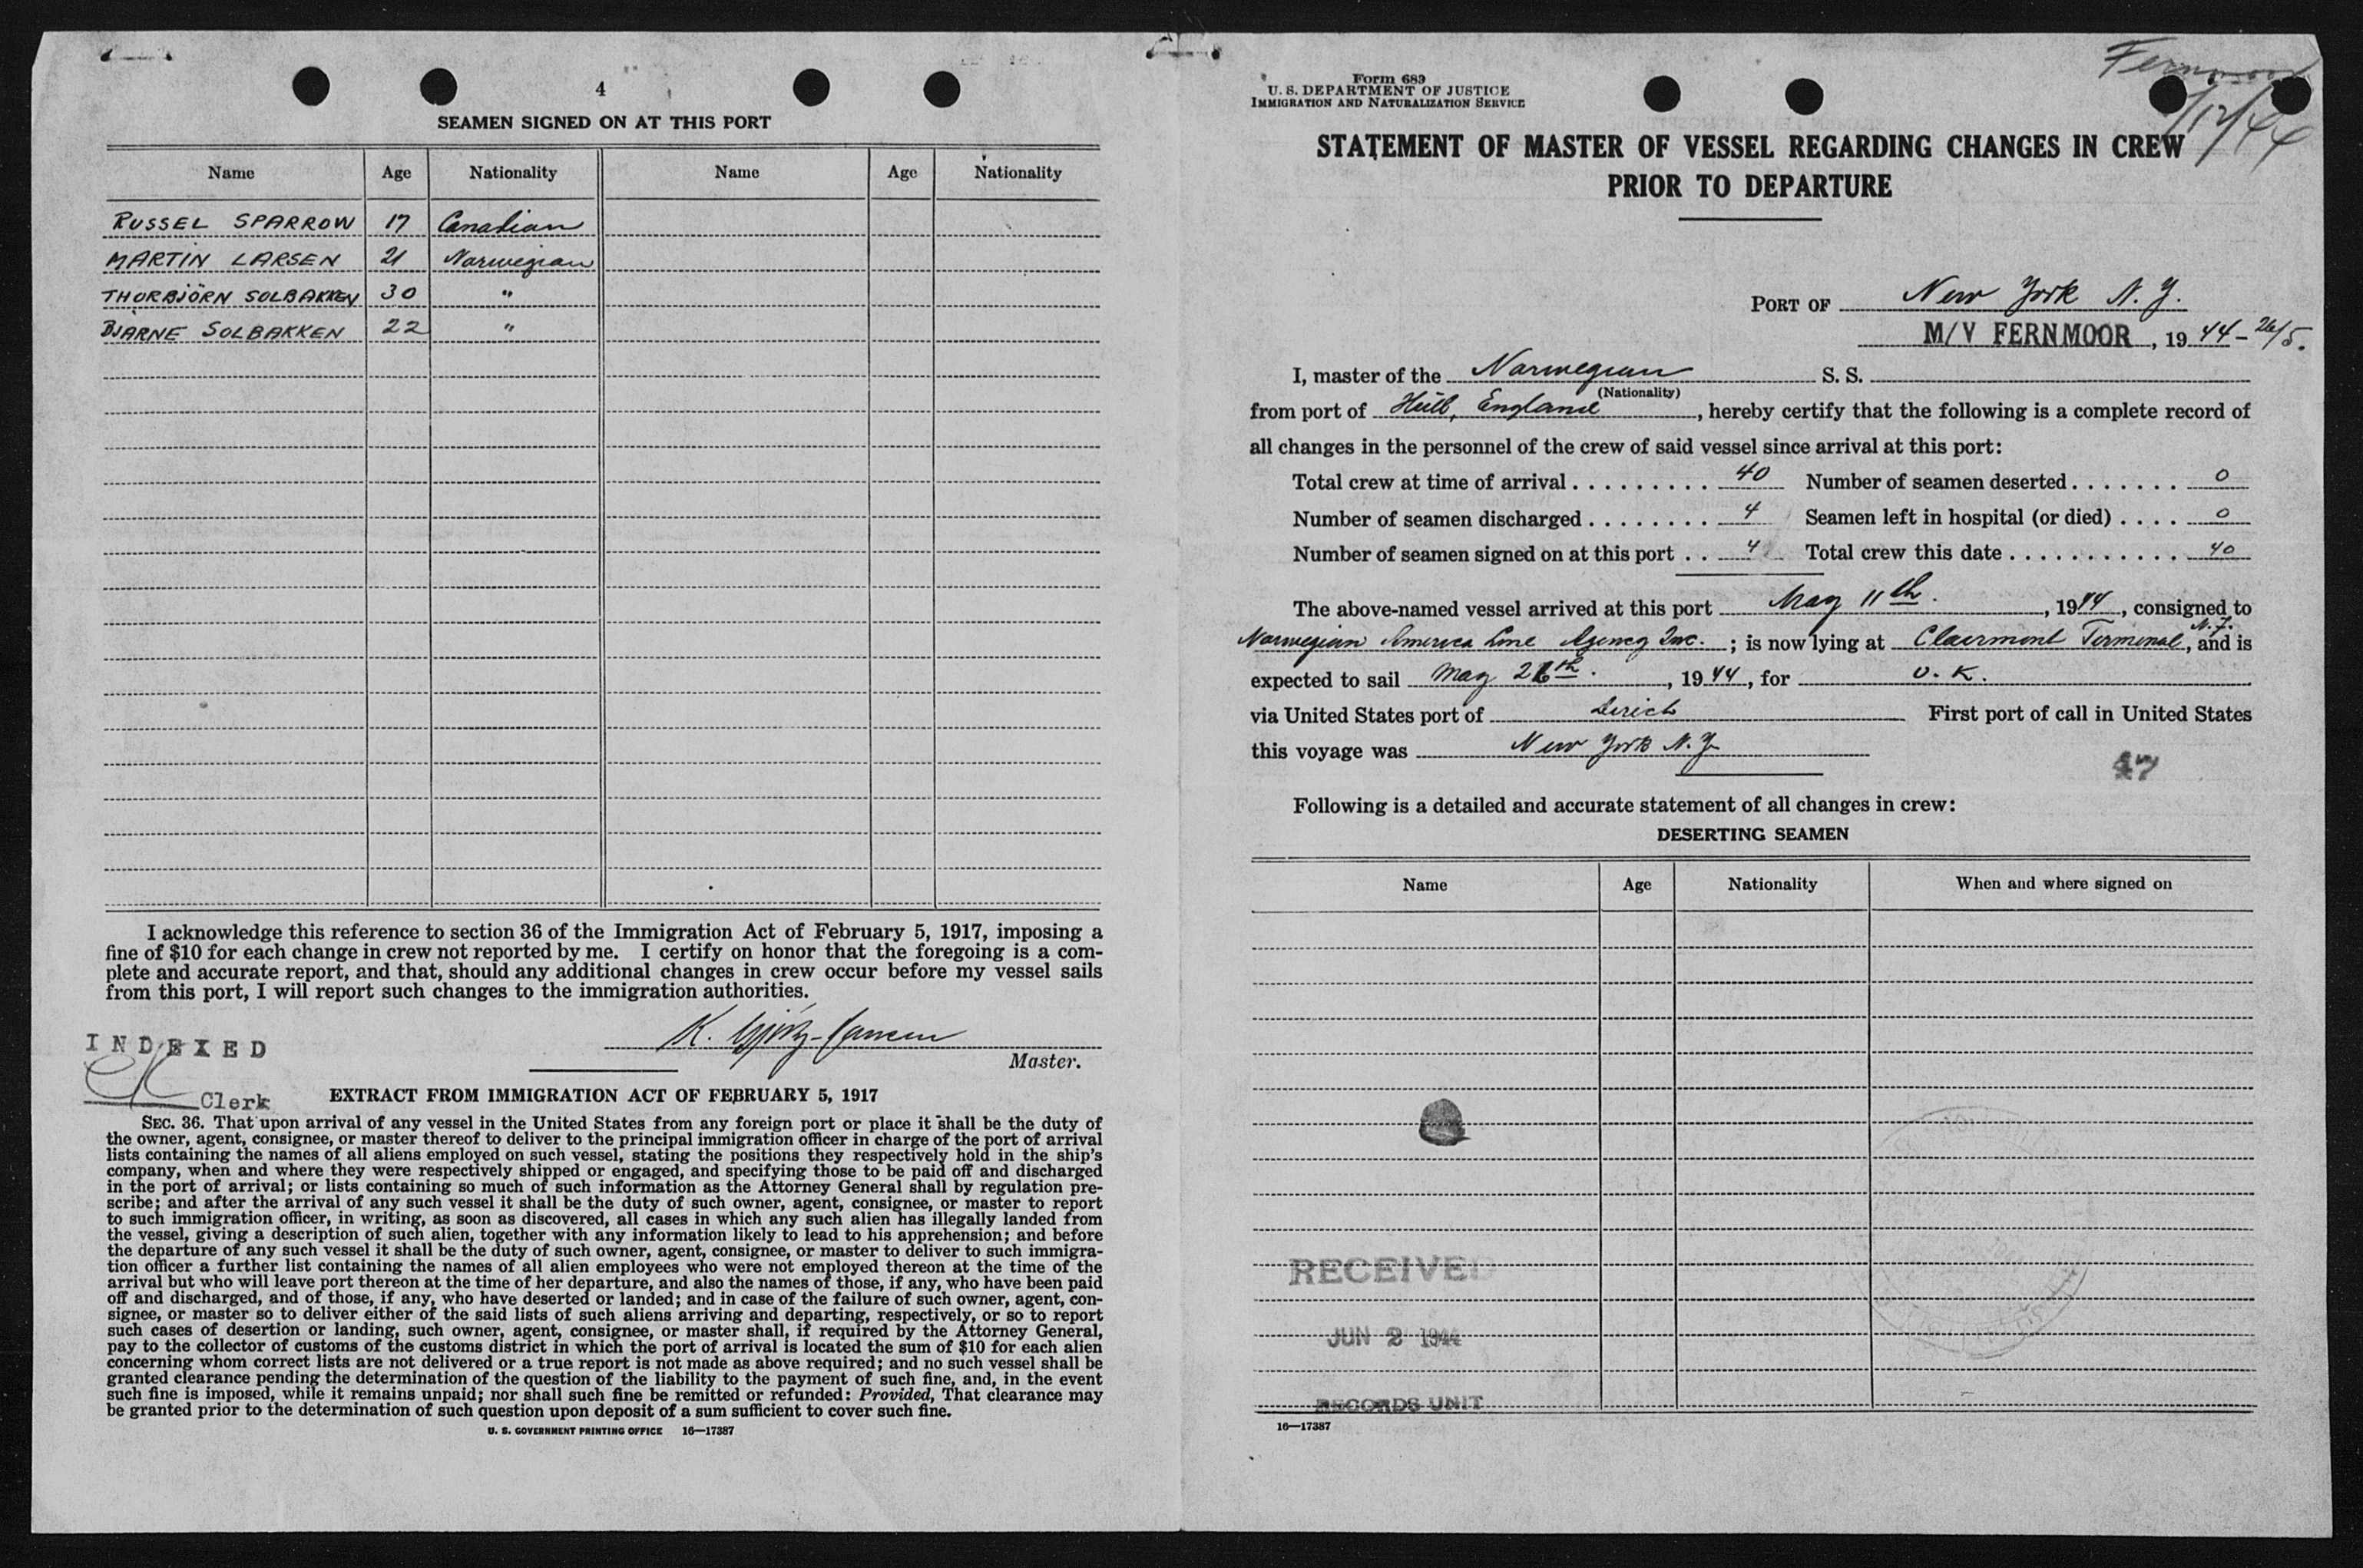 4
SEAMEN SIGNED ON AT THIS PORT
Name Age Nationality Name Age Nationality
RUSSEL SPARROW 17 Canadian
MARTIN LARSEN 21 Norwegian
THORBJÖRN SOLBAKKEN 30 "
BJARNE SOLBAKKEN 22 "
I acknowledge this reference to section 36 of the Immigration Act of February 5, 1917, imposing a
fine of $10 for each change in crew not reported by me. I certify on honor that the foregoing is a com-
plete and accurate report, and that, should any additional changes in crew occur before my vessel sails
from this port, I will report such changes to the immigration authorities.
K.
Master.
INDEXED
Clerk
EXTRACT FROM IMMIGRATION ACT OF FEBRUARY 5, 1917
SEC. 36. That upon arrival of any vessel in the United States from any foreign port or place it shall be the duty of
the owner, agent, consignee, or master thereof to deliver to the principal immigration officer in charge of the port of arrival
lists containing the names of all aliens employed on such vessel, stating the positions they respectively hold in the ship's
company, when and where they were respectively shipped or engaged, and specifying those to be paid off and discharged
in the port of arrival; or lists containing so much of such information as the Attorney General shall by regulation pre-
scribe; and after the arrival of any such vessel it shall be the duty of such owner, agent, consignee, or master to report
to such immigration officer, in writing, as soon as discovered, all cases in which any such alien has illegally landed from
the vessel, giving a description of such alien, together with any information likely to lead to his apprehension; and before
the departure of any such vessel it shall be the duty of such owner, agent, consignee, or master to deliver to such immigra-
tion officer a further list containing the names of all alien employees who were not employed thereon at the time of the
arrival but who will leave port thereon at the time of her departure, and also the names of those, if any, who have been paid
off and discharged, and of those, if any, who have deserted or landed; and in case of the failure of such owner, agent, con-
signee, or master so to deliver either of the said lists of such aliens arriving and departing, respectively, or so to report
such cases of desertion or landing, such owner, agent, consignee, or master shall, if required by the Attorney General,
pay to the collector of customs of the customs district in which the port of arrival is located the sum of $10 for each alien
concerning whom correct lists are not delivered or a true report is not made as above required; and no such vessel shall be
granted clearance pending the determination of the question of the liability to the payment of such fine, and, in the event
such fine is imposed, while it remains unpaid; nor shall such fine be remitted or refunded: Provided, That clearance may
be granted prior to the determination of such question upon deposit of a sum sufficient to cover such fine.
U. S. GOVERNMENT PRINTING OFFICE 16—17387
Fernmoor
Form 689
U. S. DEPARTMENT OF JUSTICE
IMMIGRATION AND NATURALIZATION SERVICE
STATEMENT OF MASTER OF VESSEL REGARDING CHANGES IN CREW
PRIOR TO DEPARTURE
PORT OF New York N. Y.
M/V FERNMOOR, 1944-26/5.
I, master of the Norwegian S. S.
(Nationality)
from port of Hull, England, hereby certify that the following is a complete record of
all changes in the personnel of the crew of said vessel since arrival at this port:
Total crew at time of arrival 40 Number of seamen deserted 0
Number of seamen discharged 4 Seamen left in hospital (or died) 0
Number of seamen signed on at this port 4 Total crew this date 40
The above-named vessel arrived at this port May 11th., 1944, consigned to
Norwegian America Line Agency Inc.; is now lying at Clairmont Terminal, N.J. and is
expected to sail May 26th., 1944, for U.K.
via United States port of First port of call in United States
this voyage was New York N.Y
47
Following is a detailed and accurate statement of all changes in crew:
DESERTING SEAMEN
Name Age Nationality When and where signed on
RECEIVED
JUN 2 1944
RECORDS UNIT
16—17387